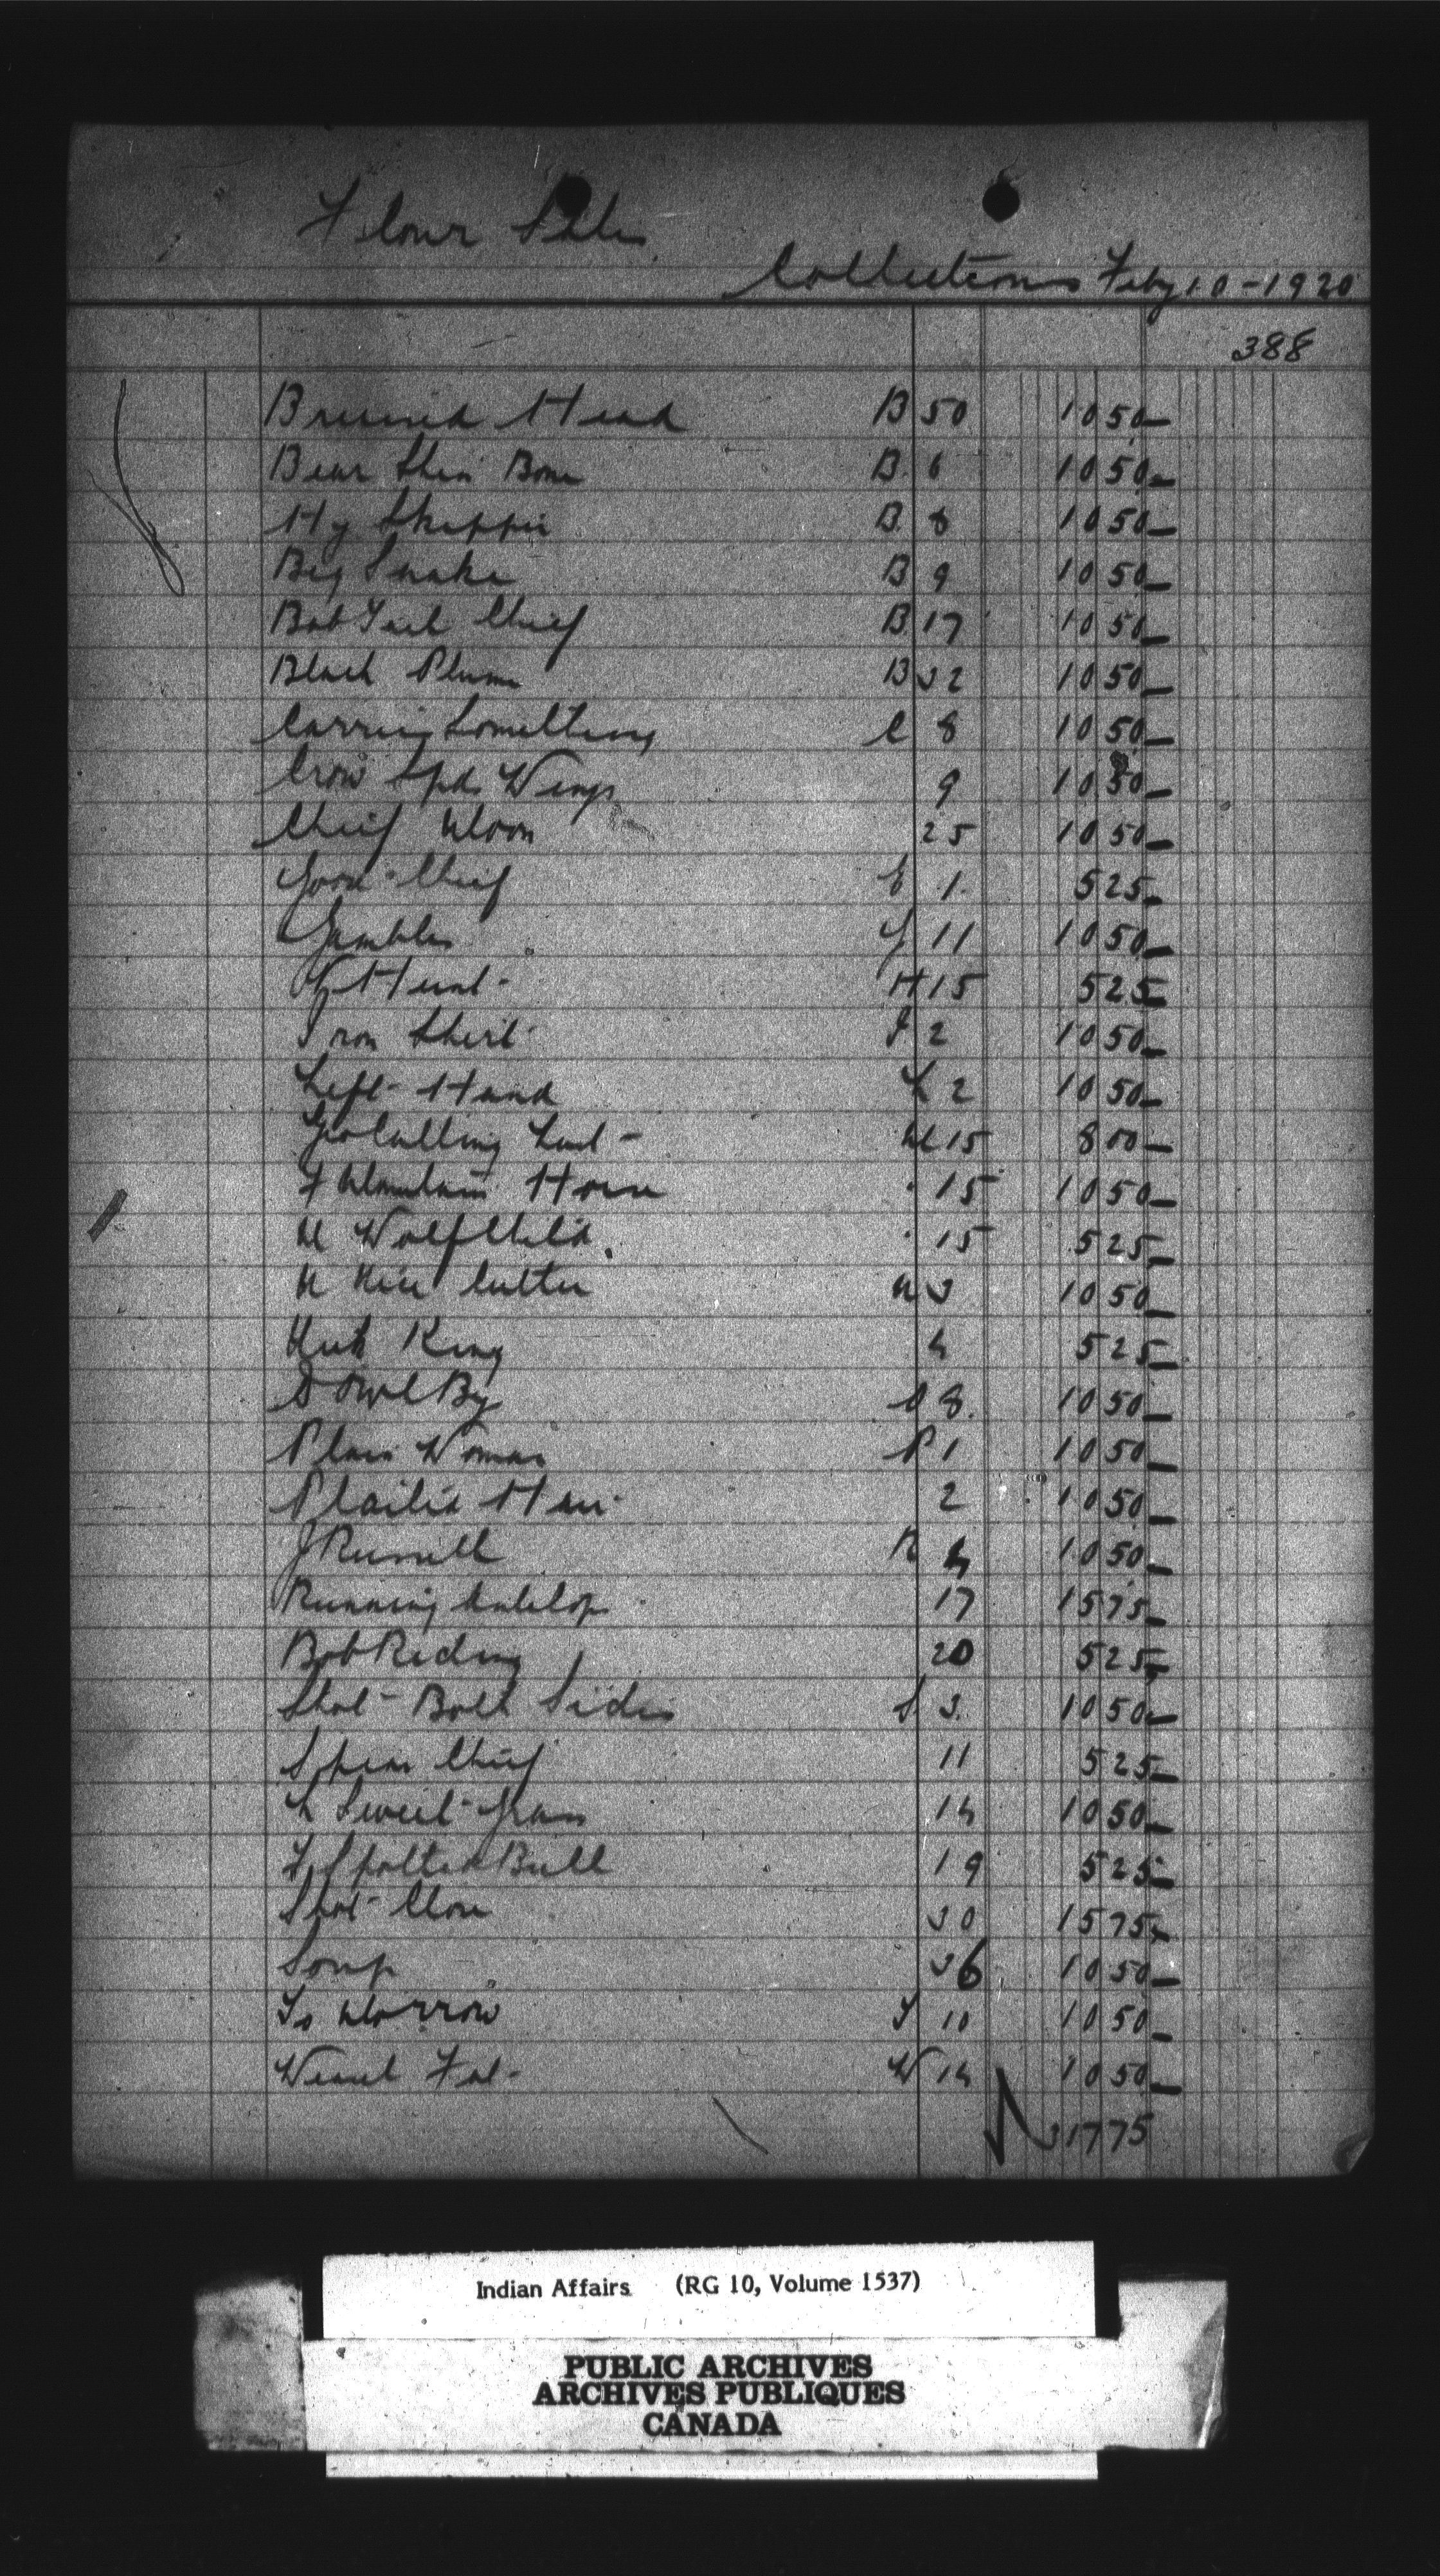 Flour Sales
Collections Feby 10-1920
388
Bruised Head B 50 10 50
Bear Shin Bone B. 6 10 50
Hy Strappin B. 8 10 50
Big Snake B 9 10 50
Bob Tail Chief B 17 10 50
Black Plume B 32 10 50
Carries Something C 8 10 50
Crow Spds Wings 9 10 50
Chief Moon 25 10 50
Good Chief G 1 5 25
Gambler G 11 10 50
Hunt H 15 5 25
Iron Shirt I 2 10 50
Left Hand L 2 10 50
Geo Calling Last M 15 8 00
F Mountain Horse " 15 10 50
M Wolf Child " 15 5 25
N Nice Cutter N 3 10 50
Nick King 4 5 25
D Owl By O 8 10 50
Plain Woman P 1 10 50
Plaited Hair 2 10 50
J Russell R 4 10 50
Running Antelop 17 15 75
Bob Riding 20 5 25
Shot Both Sides S 3 10 50
Spear Chief 11 5 25
L Sweet Grass 14 10 50
F Spotted Bull 19 5 25
Shot Close 30 15 75
Soup 36 10 50
To Morrow T 10 10 50
Weasel Fat W 14 10 50
317 75
Indian Affairs (RG 10, Volume 1537)
PUBLIC ARCHIVES
ARCHIVES PUBLIQUES
CANADA